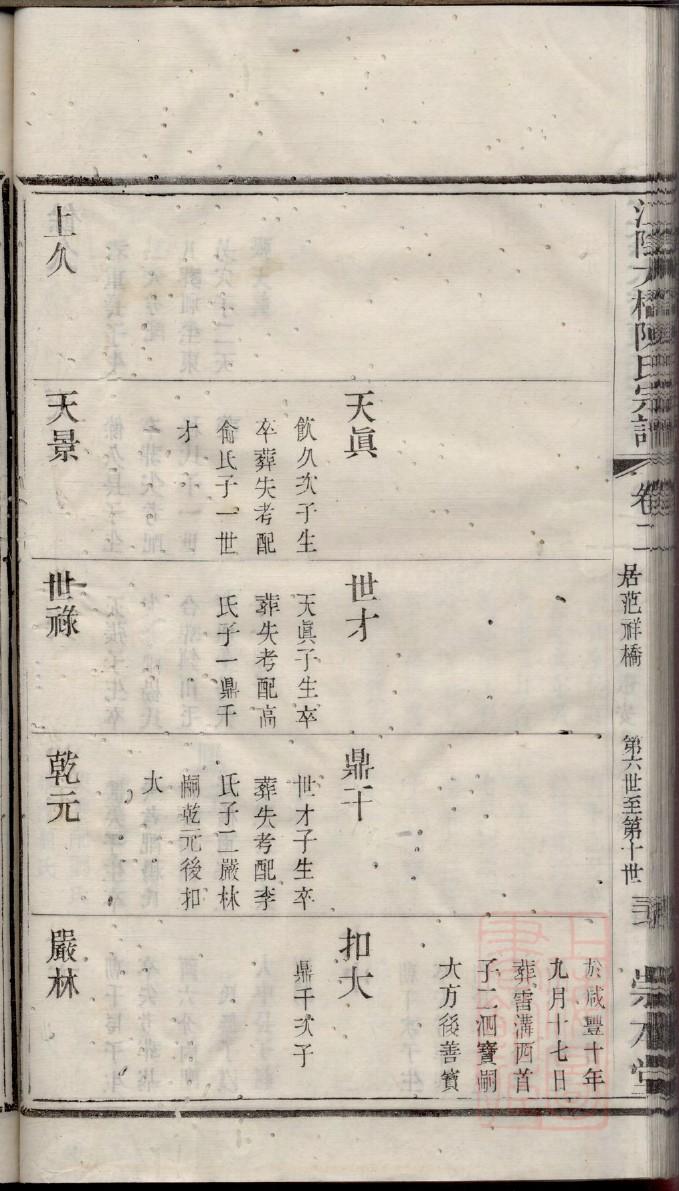 江陰大橋陳氏宗譜
卷二
居范祥橋
第六世至第十世
崇本堂
天眞
飲久次子生
卒葬失考配
俞氏子一世
才
世才
天眞子生卒
葬失考配高
氏子一鼎干
鼎干
世才子生卒
葬失考配李
氏子二嚴林
嗣乾元後扣
大
於咸豐十年
九月十七日
葬雷溝西首
子二泗寶嗣
大方後善寶
扣大
鼎干次子
上久
天景
世祿
乾元
嚴林